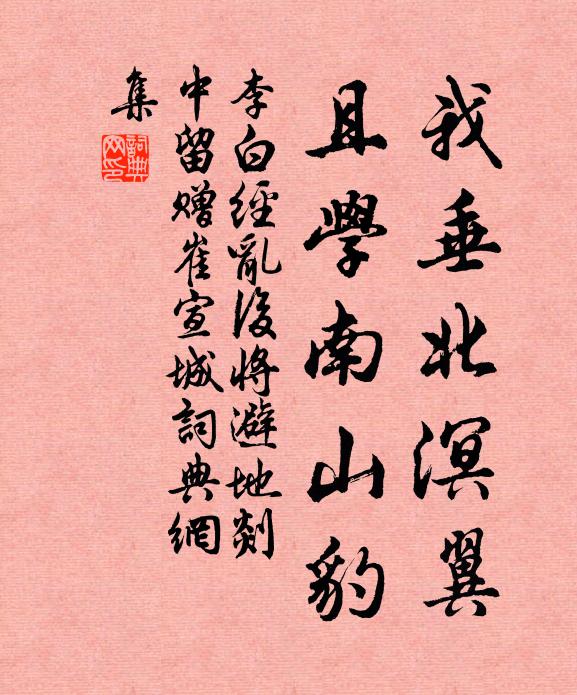 我垂北溟翼
且學南山豹
李白經亂後將避地剡
中留贈崔宣城詞典網
集
詞典
网印